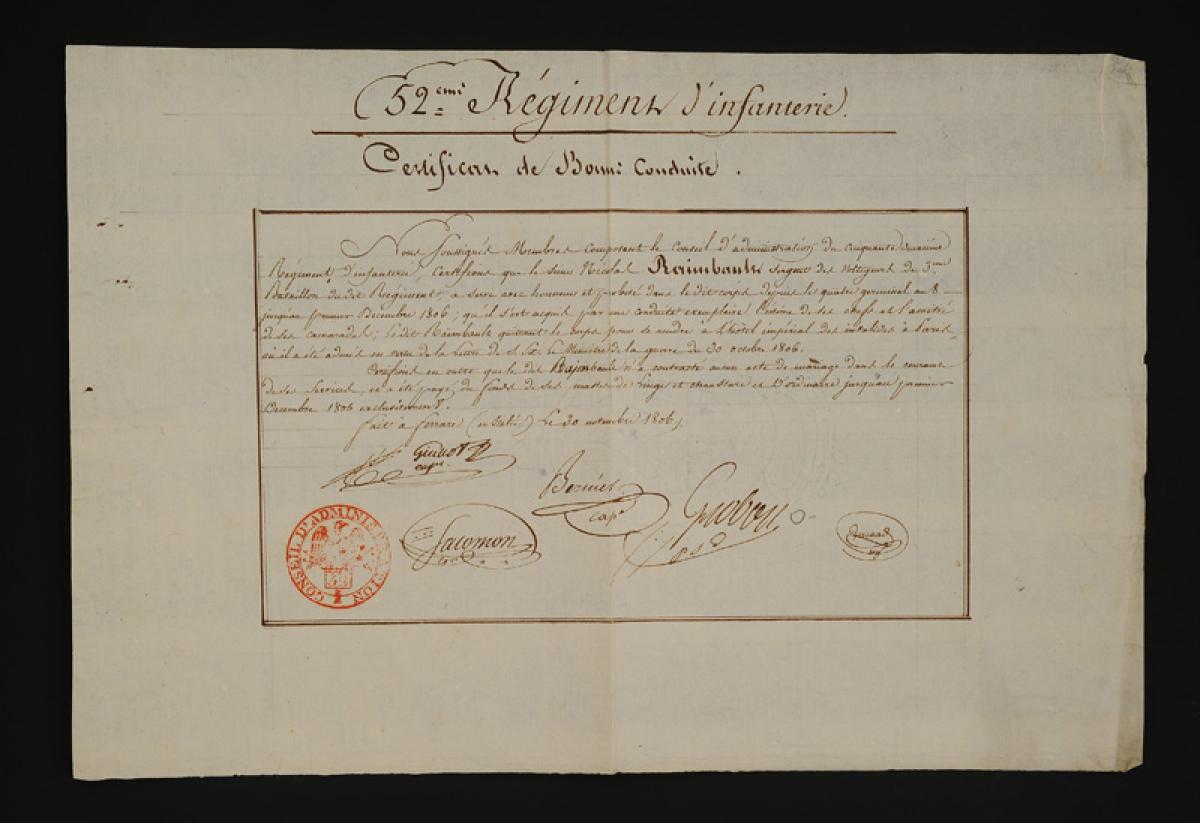 52.eme Régiment d'infanterie.
Certificat de Bonne Conduite.
Nous Soussignés Membres Composant le Conseil d'administration du Cinquante deuxième
Régiment d'infanterie, Certifions que le Sieur Nicolas Raimbault Sergent des Voltigeurs de 3.me
Bataillon du dit Régiment, a servi avec honneur et probité dans le dit corps depuis le quatre germinal an 8
jusqu'au premier Décembre 1806; qu'il s'est acquis par une conduite exemplaire l'estime de ses chefs et l'amitié
de ses camarades; ledit Raimbault quittant le corps pour se rendre à l'hotel impérial des invalides à Paris
où il a été admis en vertu de la Lettre de S. Ex. le Ministre de la guerre du 30 octobre 1806.
Certifions en outre que le dit Raimbault n'a contracté aucun acte de mariage dans le courant
de ses Services, et a été payé du fonds de ses masses de Linge et chaussure et d'ordinaire jusqu'au premier
Décembre 1806 exclusivement.
fait à ferrare (en Italie) Le 30 novembre 1806.
capne.
Bernier
cap.e
Salomon
CONSEIL D'ADMINISTRATION